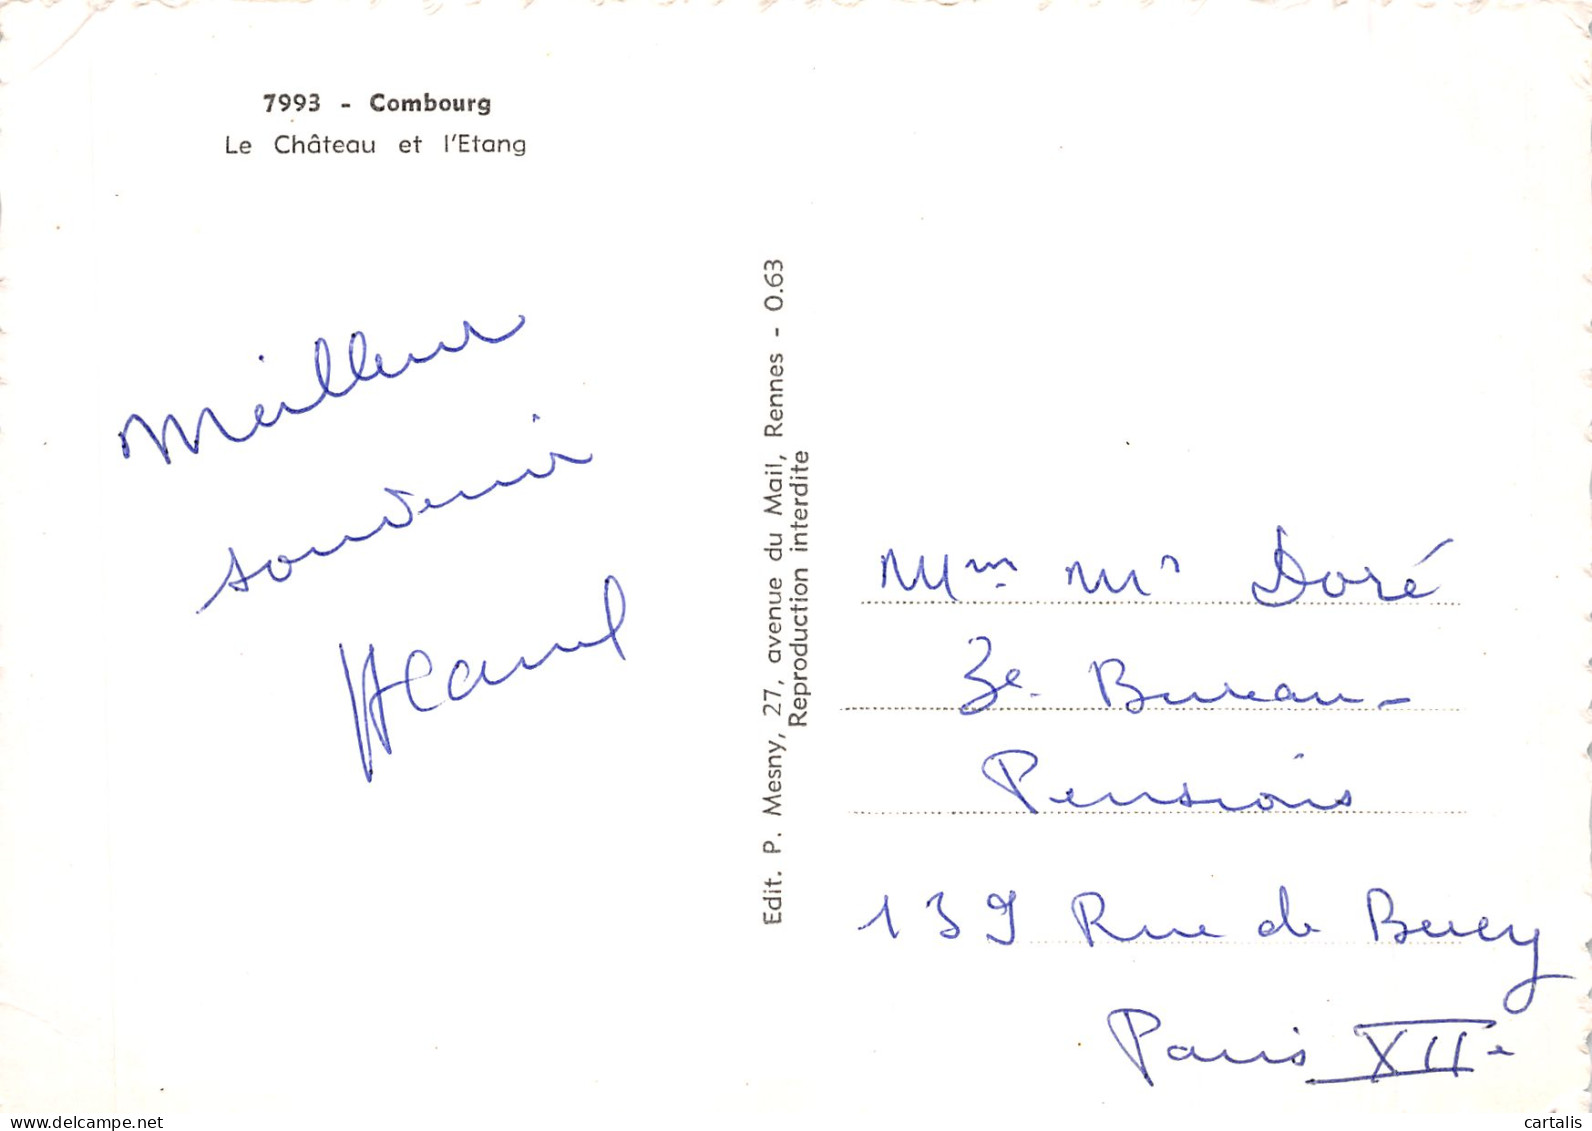 7993 - Combourg
Le Château et l'Etang
Meilleur
souvenir
Edit. P. Mesny, 27, avenue du Mail, Rennes - 0.63
Reproduction interdite
Mme Mr Doré
3e Bureau -
Pensions
139 Rue de Bercy
Paris XIIe
www.delcampe.net
cartalis